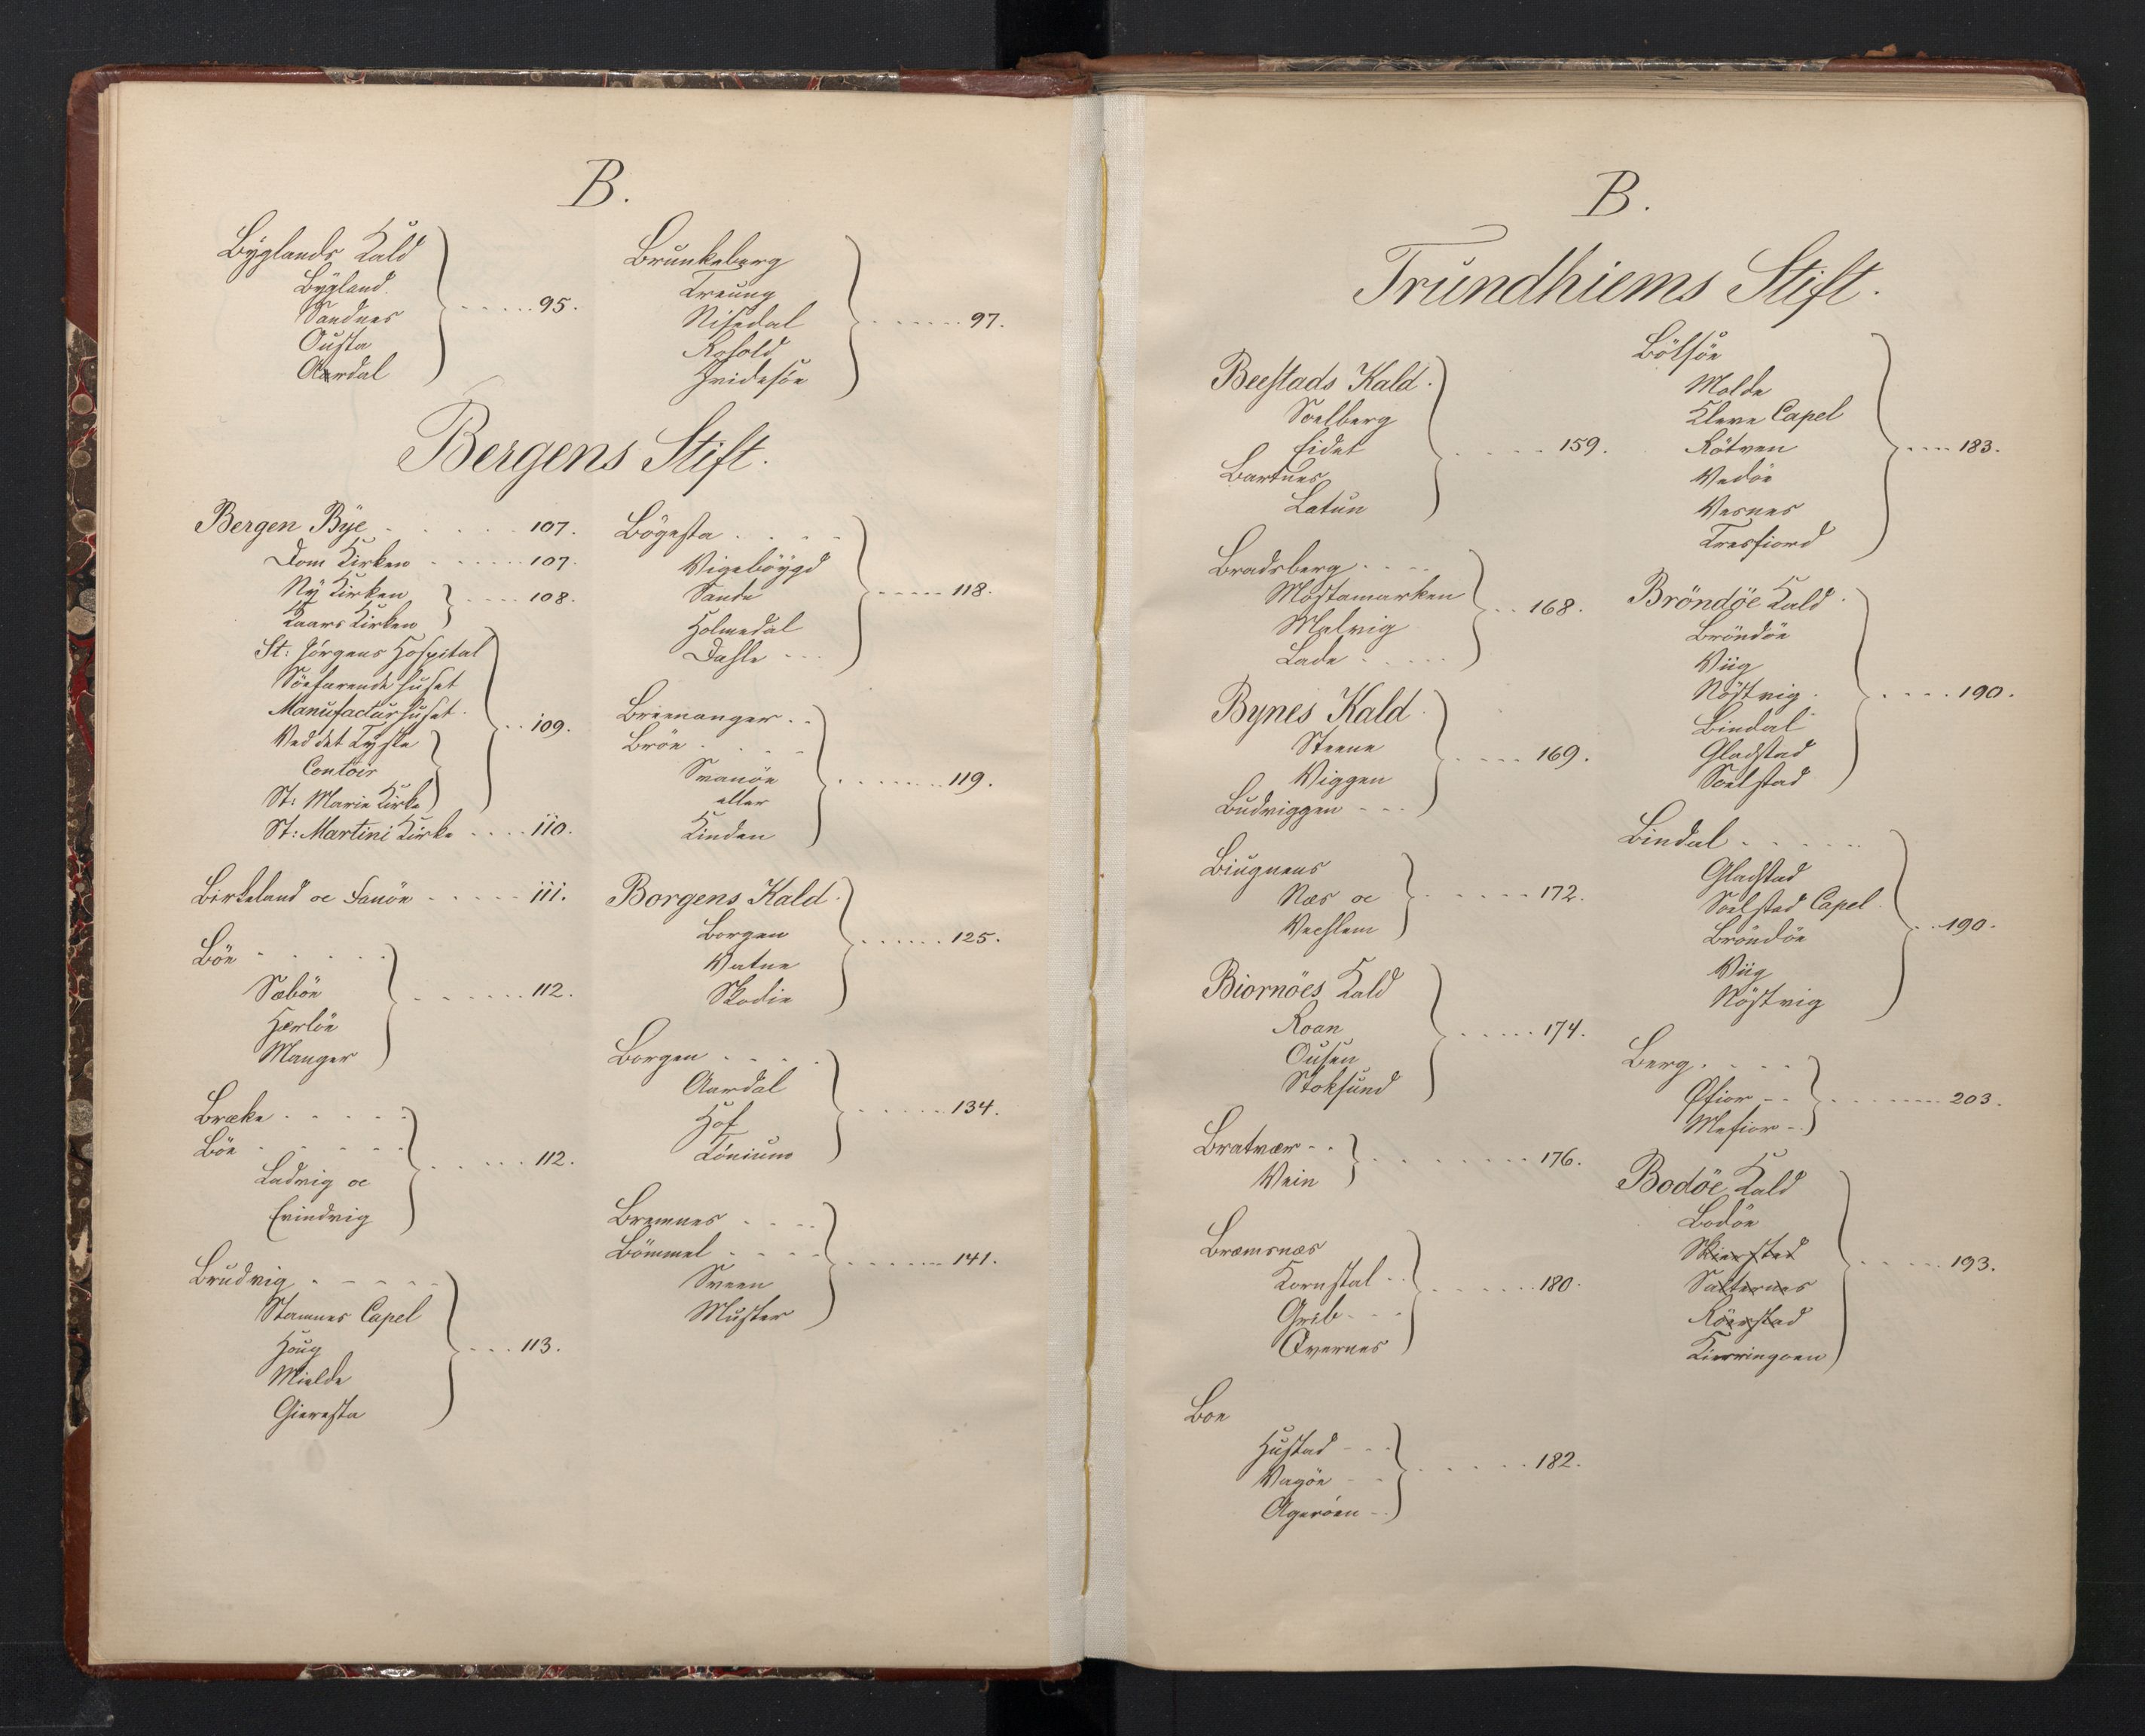 B.
Byglands Kald
Bygland.
Sandnes
Ousta
Aardal
95.
Brunkeberg
Treung
Nisedal
Hvidesöe
97.
Bergens Stift.
Bergen Bÿe 107.
Dom Kirken 107.
Nÿ Kirken
Kaars Kirken
108.
St: Jörgens Hospital
Söefarende huset
Manufacturhuset.
Ved det Tyske
Contoir
St: Marie Kirke
109.
St: Martini Kirke 110.
Birkeland oc Fanöe 111.
Böe
Sæböe
Herlöe
Manger
112.
Brække
Böe
Ladvig oc
Evindvig
112.
Brudvig
Stamnes Capel
Houg
Mielde
Gieresta
113.
Bögesta
Vigeböygd
Sande
Holmedal
Dahle
118.
Bremanger
Bröe
Svanöe
eller
Kinden
119.
Borgens Kald.
Borgen
Vatne
Skodie
125.
Borgen
Aardal
Hof
Tönium
134.
Bremnes
Bömmel
Sveen
Muster
141.
B.
Trundhiems Stift.
Beestads Kald.
Soelberg
Eidet
Bartnes
Latun
159.
Bradsberg
Mostamarken
Malvig
Lade
168.
Bynes Kald
Steene
Viggen
Budviggen
169.
Biugnens
Næs oc
Vechlem
172.
Biornöes Kald
Roan
Ousen
Stoksund
174.
Bratvær
Vein
176.
Bræmsnæs
Kornstal
Grib
Qvernes
180.
Boe
Hustad
Vagöe
Ageröen
182.
Bölsöe
Molde
Kleve Capel
Rötven
Vedöe
Vesnes
Tresfiord
183.
Bröndöe Kald.
Bröndöe
Viig
Nöstvig.
Bindal
Gladstad
Soelstad
190.
Bindal
Gladstad
Soelstad Capel
Bröndöe
Viig
Nöstvig
190.
Berg
Öfior
Mefior
203.
Bodöe Kald
Bodöe
Skierstad
Salternes
Röerstad
Kierringöen
193.